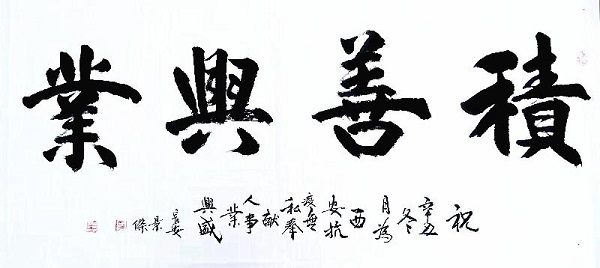 積善興業
祝
辛丑
冬
月為
西
安抗
疫無
私奉
献
人事
業
興盛
長安
景